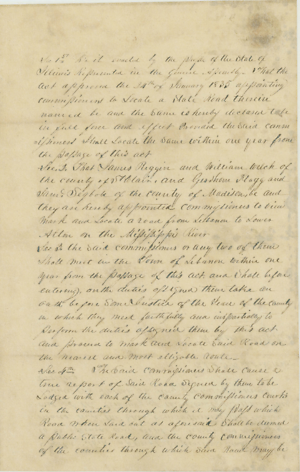 Sec 1st Be it enacted by the people of the State of
Illinois represented in the General Assembly That the
act approved the of January 1835 appointing
commissioners to Locate a State Road therein
named be and the same is hereby declared
in full force and effect Provided the said commis
sioners Shall Locate the same within one year from
the passage of this act
Sec 2 That James and William
of the county of St Clair and Gersham Flagg and
of the county of Madison be and
they are hereby appointed commissioners to view
Mark and Locate a road from Lebanon to Lower
Alton on the Mississippi River
Sec 3 The said commissioners or any two of them
Shall meet in the Town of Lebanon within one
year from the passage of this act and Shall before
entering on the duties assigned them take an
oath before some Justice of the Peace of the county
in which they meet faithfully and impartially to
perform the duties assigned them by this act
and proceed to mark and Locate said Road on
the nearest and most eligible route
Sec 4th The said commissioners Shall cause a
true report of said Road signed by them to be
Lodged with each of the county commissioners courts
in the counties through which it may pass which
Road when laid out as aforesaid Shall be deemed
a Public State Road, and the county commissioners
of the counties through which said Road may be